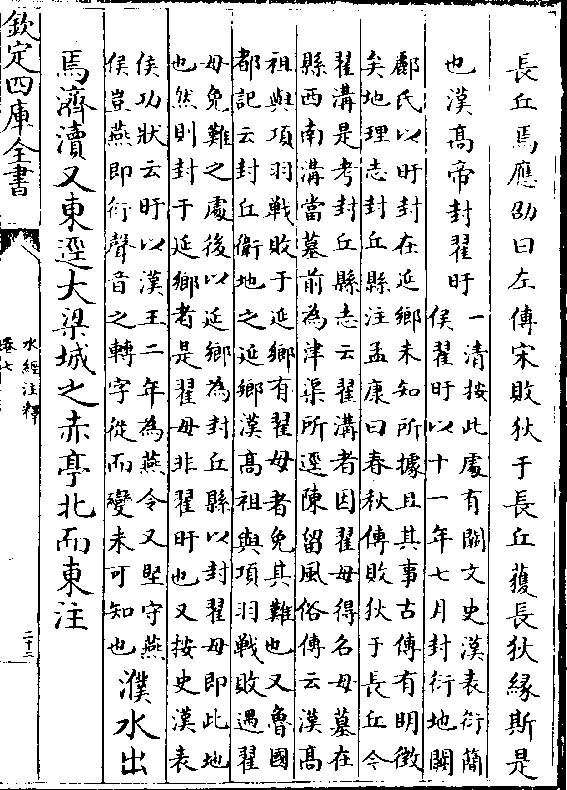 長丘焉應劭曰左傳宋敗狄于長丘獲長狄緣斯是
也漢高帝封翟盱
一清按此處有闕文史漢表衍簡
侯翟盱以十一年七月封衍地闕
酈氏以盱封在延鄉未知所據且其事古傳有明徵
矣地理志封丘縣注孟康曰春秋傳敗狄于長丘今
翟溝是考封丘縣志云翟溝者因翟母得名母墓在
縣西南溝當墓前為津渠所逕陳留風俗傳云漢高
祖與項羽戰敗于延鄉有翟母者免其難也又魯國
都記云封丘衛地之延鄉漢高祖與項羽戰敗遇翟
母免難之處後以延鄉為封丘縣以封翟母即此地
也然則封于延鄉者是翟母非翟盱也又按史漢表
侯功狀云盱以漢王二年為燕令又堅守燕
侯豈燕即衍聲音之轉字從而變未可知也
濮水出
焉濟瀆又東逕大梁城之赤亭北而東注
欽定四庫全書
水經注釋
卷七
二十二